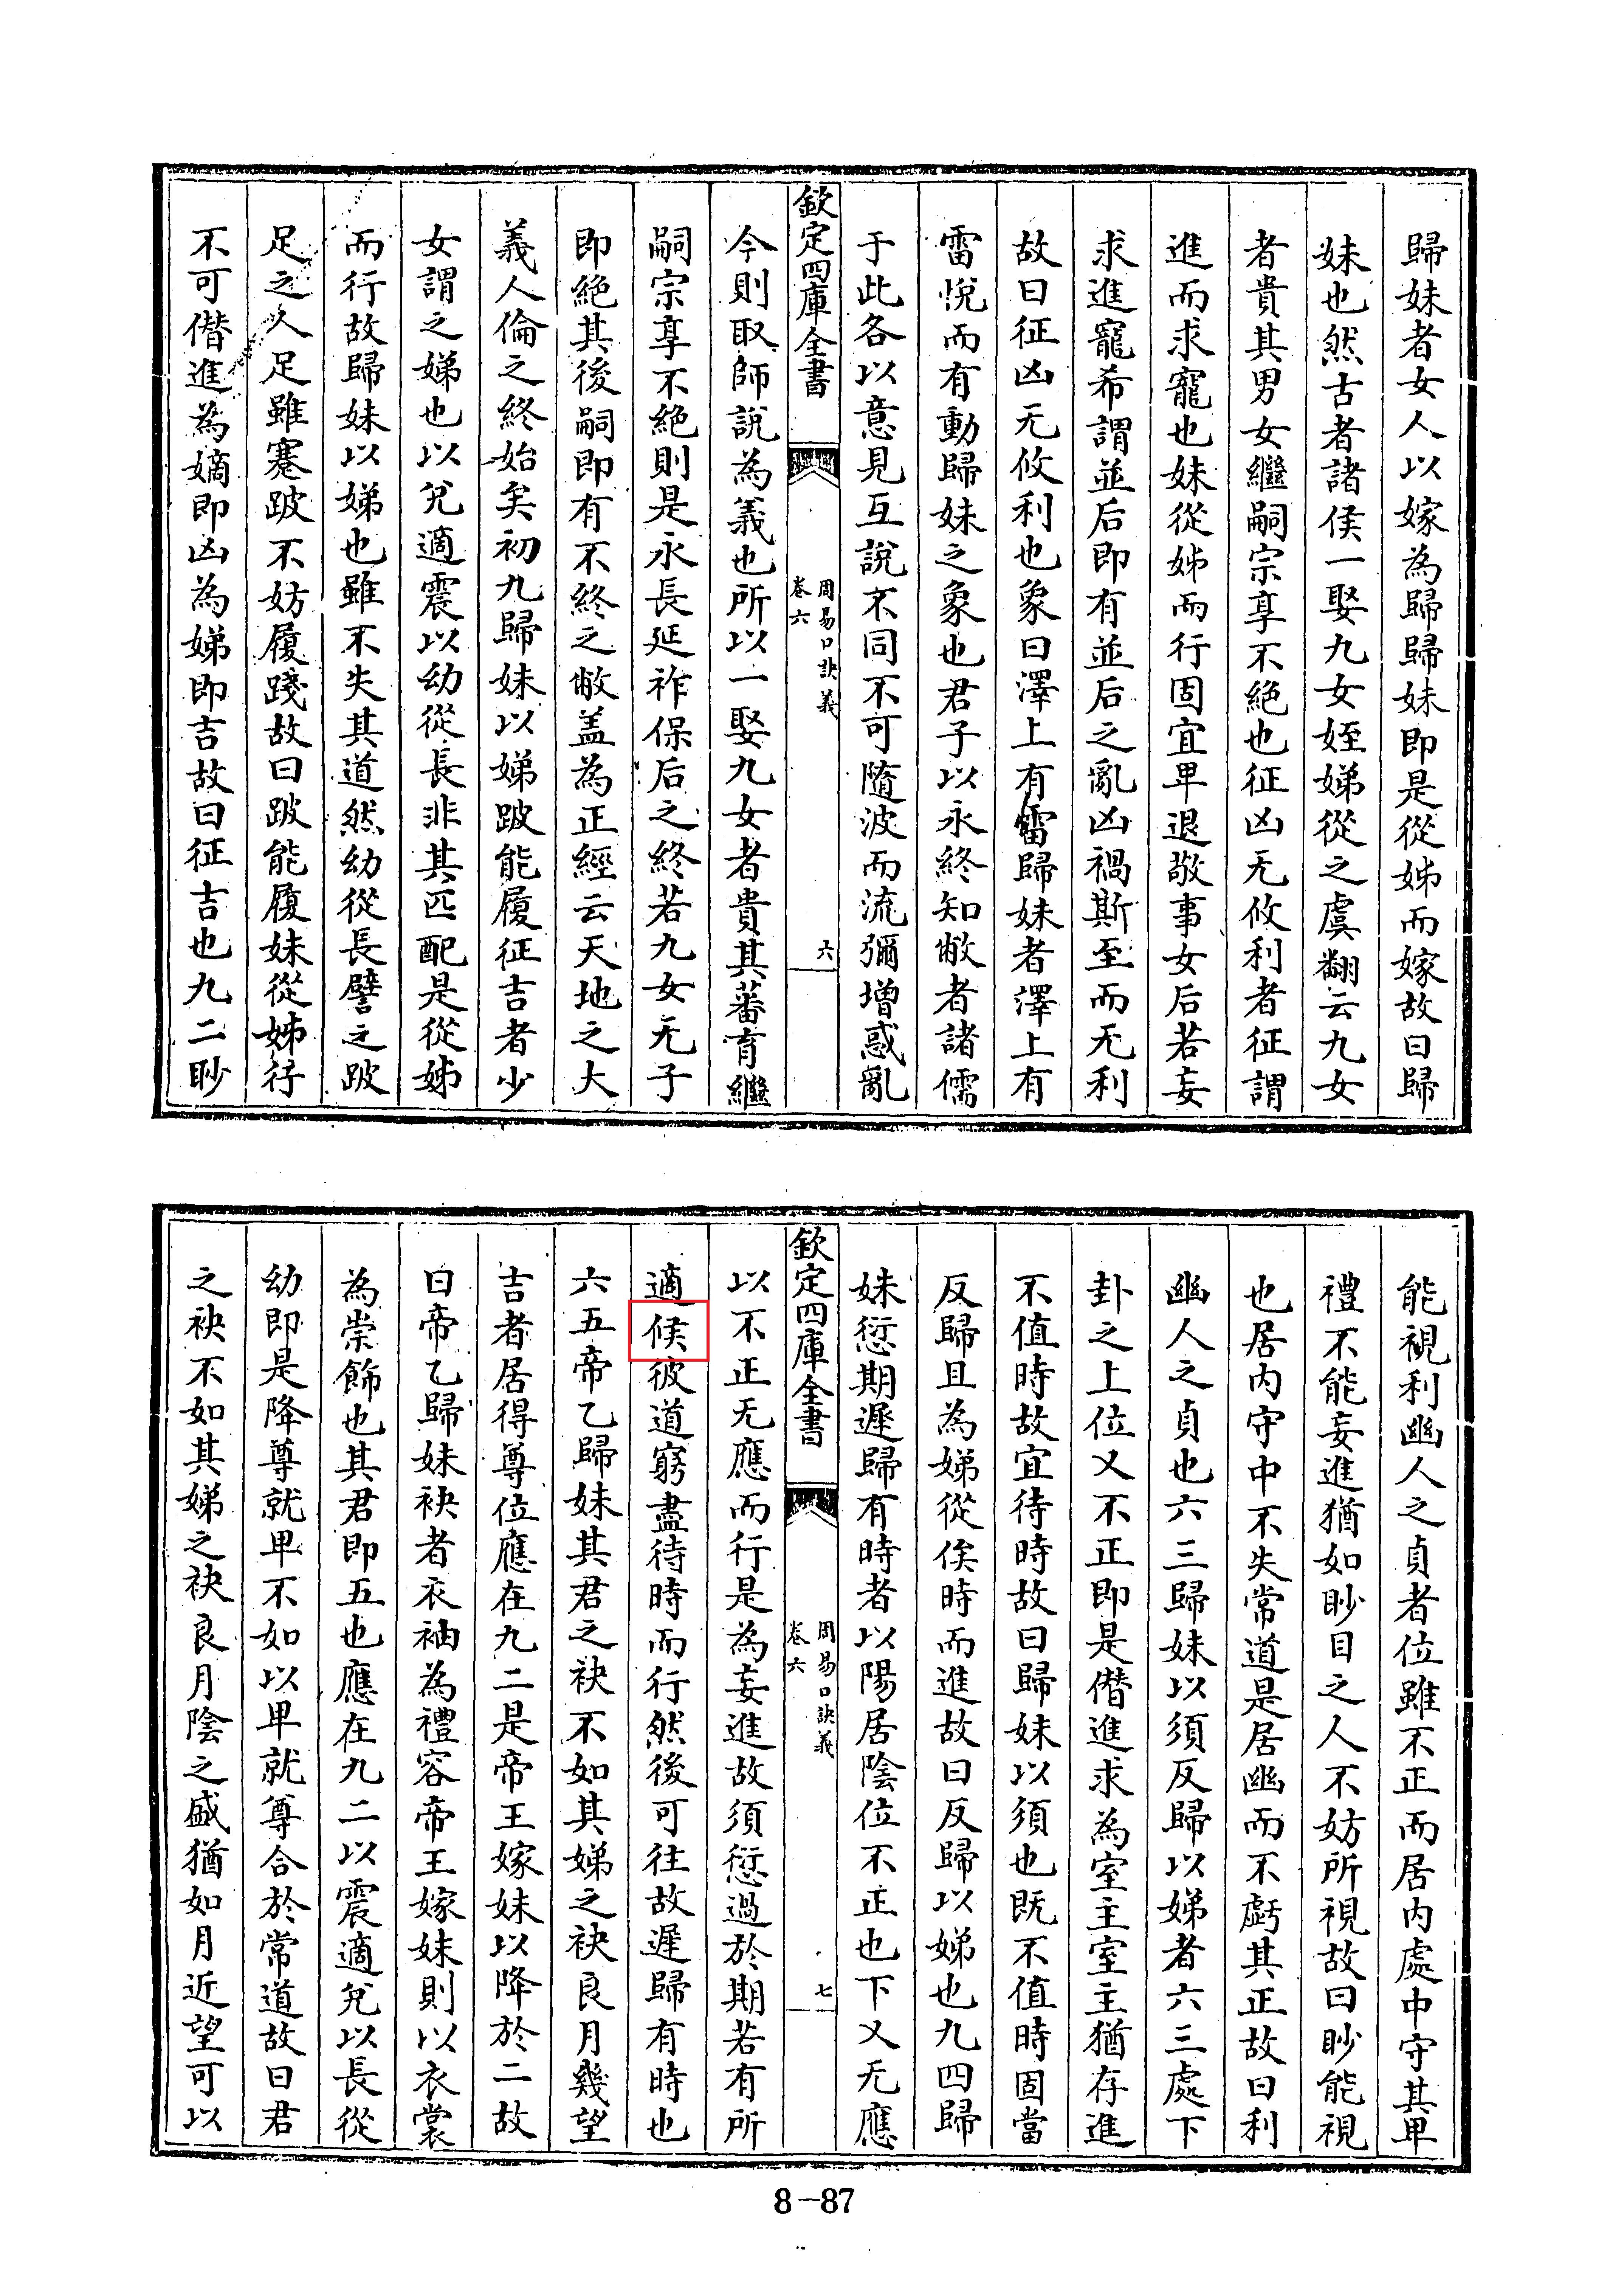 歸妹者女人以嫁為歸歸妹即是從姊而嫁故曰歸
妹也然古者諸侯一娶九女姪娣從之虞翻云九女
者貴其男女繼嗣宗享不絶也征凶无攸利者征謂
進而求寵也妹從姊而行固宜卑退敬事女后若妄
求進寵希謂並后即有並后之亂凶禍斯至而无利
故曰征凶无攸利也象曰澤上有雷歸妹者澤上有
雷悅而有動歸妹之象也君子以永終知敝者諸儒
于此各以意見互說不同不可隨波而流彌增惑亂
欽定四庫全書
周易口訣義
卷六
六
今則取師說為義也所以一娶九女者貴其蕃育繼
嗣宗享不絶則是永長延祚保后之終若九女无子
即絶其後嗣即有不終之敝盖為正經云天地之大
義人倫之終始矣初九歸妹以娣跛能履征吉者少
女謂之娣也以兌適震以幼從長非其匹配是從姊
而行故歸妹以娣也雖不失其道然幼從長譬之跛
足之人足雖蹇跛不妨履踐故曰跛能履妹從姊行
不可僭進為嫡即凶為娣即吉故曰征吉也九二眇
能視利幽人之貞者位雖不正而居内處中守其卑
禮不能妄進猶如眇目之人不妨所視故曰眇能視
也居内守中不失常道是居幽而不虧其正故曰利
幽人之貞也六三歸妹以須反歸以娣者六三處下
卦之上位又不正即是僭進求為室主室主猶存進
不值時故宜待時故曰歸妹以須也既不值時固當
反歸且為娣從俟時而進故曰反歸以娣也九四歸
妹愆期遲歸有時者以陽居陰位不正也下又无應
欽定四庫全書
周易口訣義
卷六
七
以不正无應而行是為妄進故須愆過於期若有所
適候彼道窮盡待時而行然後可往故遲歸有時也
六五帝乙歸妹其君之袂不如其娣之袂良月幾望
吉者居得尊位應在九二是帝王嫁妹以降於二故
曰帝乙歸妹袂者衣袖為禮容帝王嫁妹則以衣裳
為崇飾也其君即五也應在九二以震適兌以長從
幼即是降尊就卑不如以卑就尊合於常道故曰君
之袂不如其娣之袂良月陰之盛猶如月近望可以
8-87